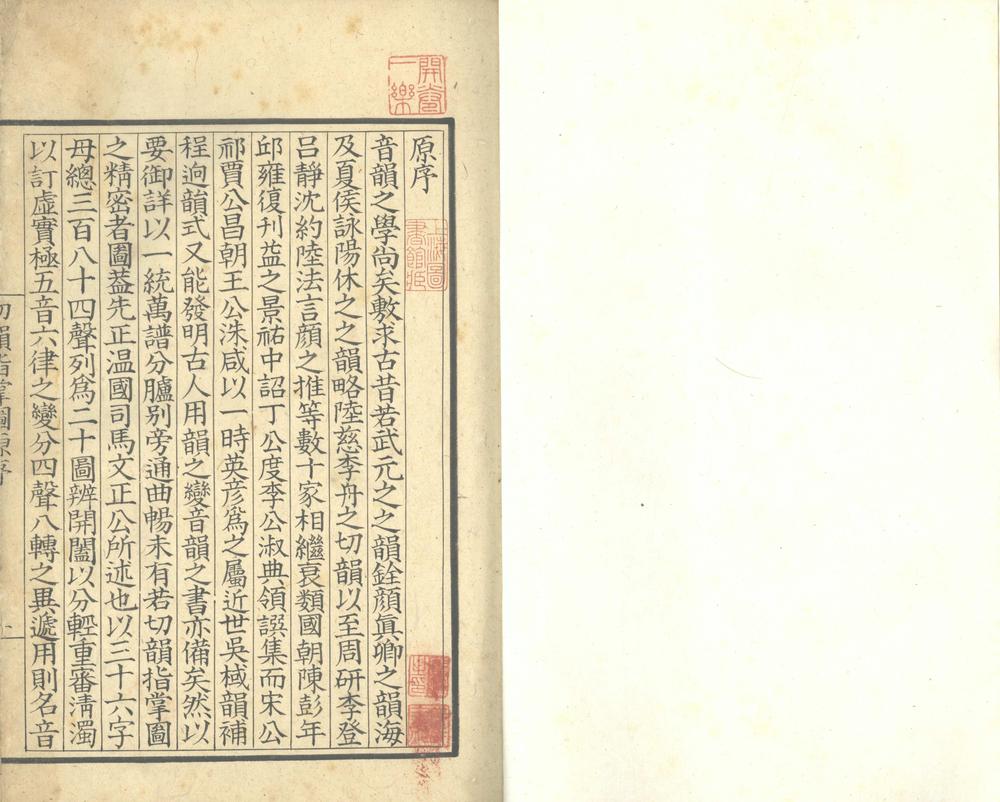 原序
音韻之學尚矣敷求古昔若武元之之韻銓顏眞卿之韻海
及夏侯詠陽休之之韻略陸慈李舟之切韻以至周研李登
呂靜沈約陸法言顏之推等數十家相繼裒類國朝陳彭年
邱雍復刊益之景祐中詔丁公度李公淑典領譔集而宋公
祁賈公昌朝王公洙咸以一時英彦爲之屬近世吳棫韻補
程迥韻式又能發明古人用韻之變音韻之書亦備矣然以
要御詳以一統萬譜分臚别旁通曲暢未有若切韻指掌圖
之精密者圖葢先正温國司馬文正公所述也以三十六字
母總三百八十四聲列爲二十圖辨開闔以分輕重審清濁
以訂虛實極五音六律之變分四聲八轉之異遞用則名音
切韻指掌圖原序
上海圖書館藏